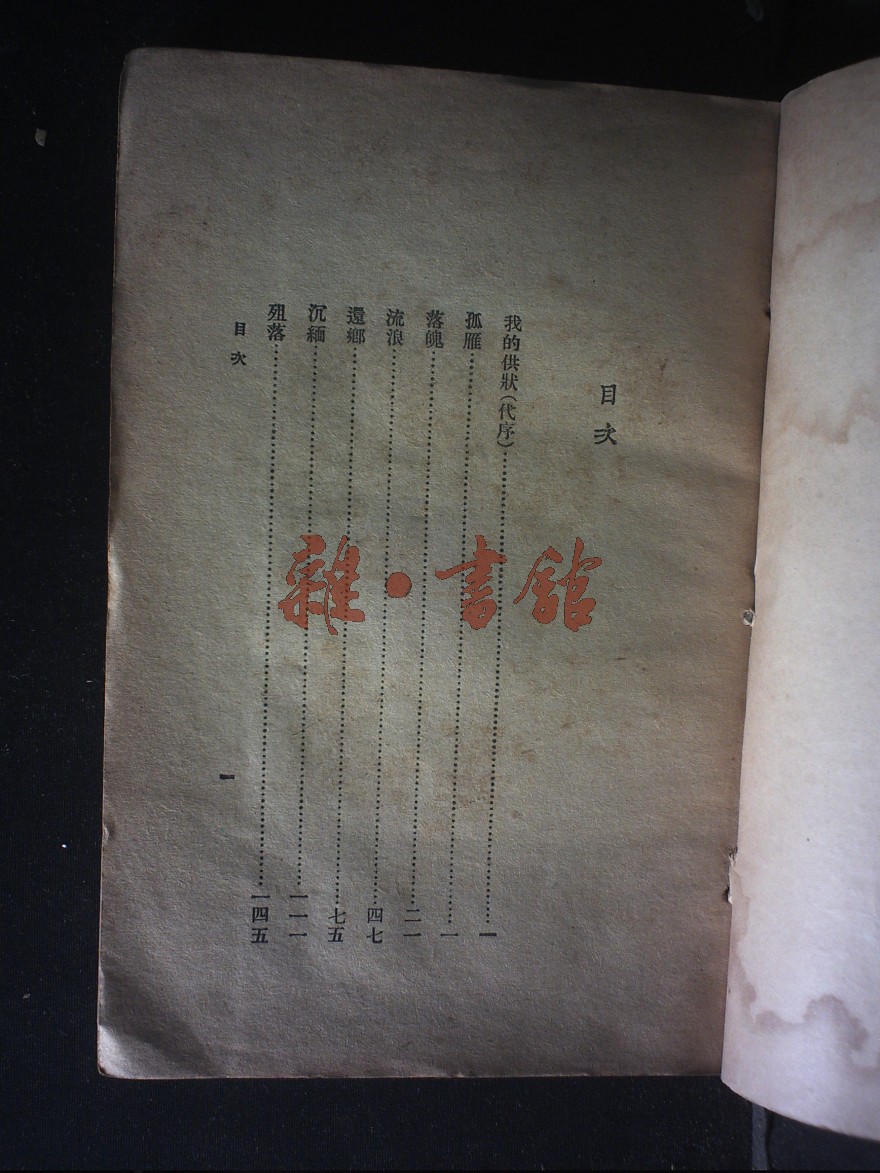 目次
我的供狀（代序）……一
孤雁……一
落魄……二一
流浪……四七
還鄉……七五
沉緬……一一一
殂落……一四五
目次
一
雜·書館